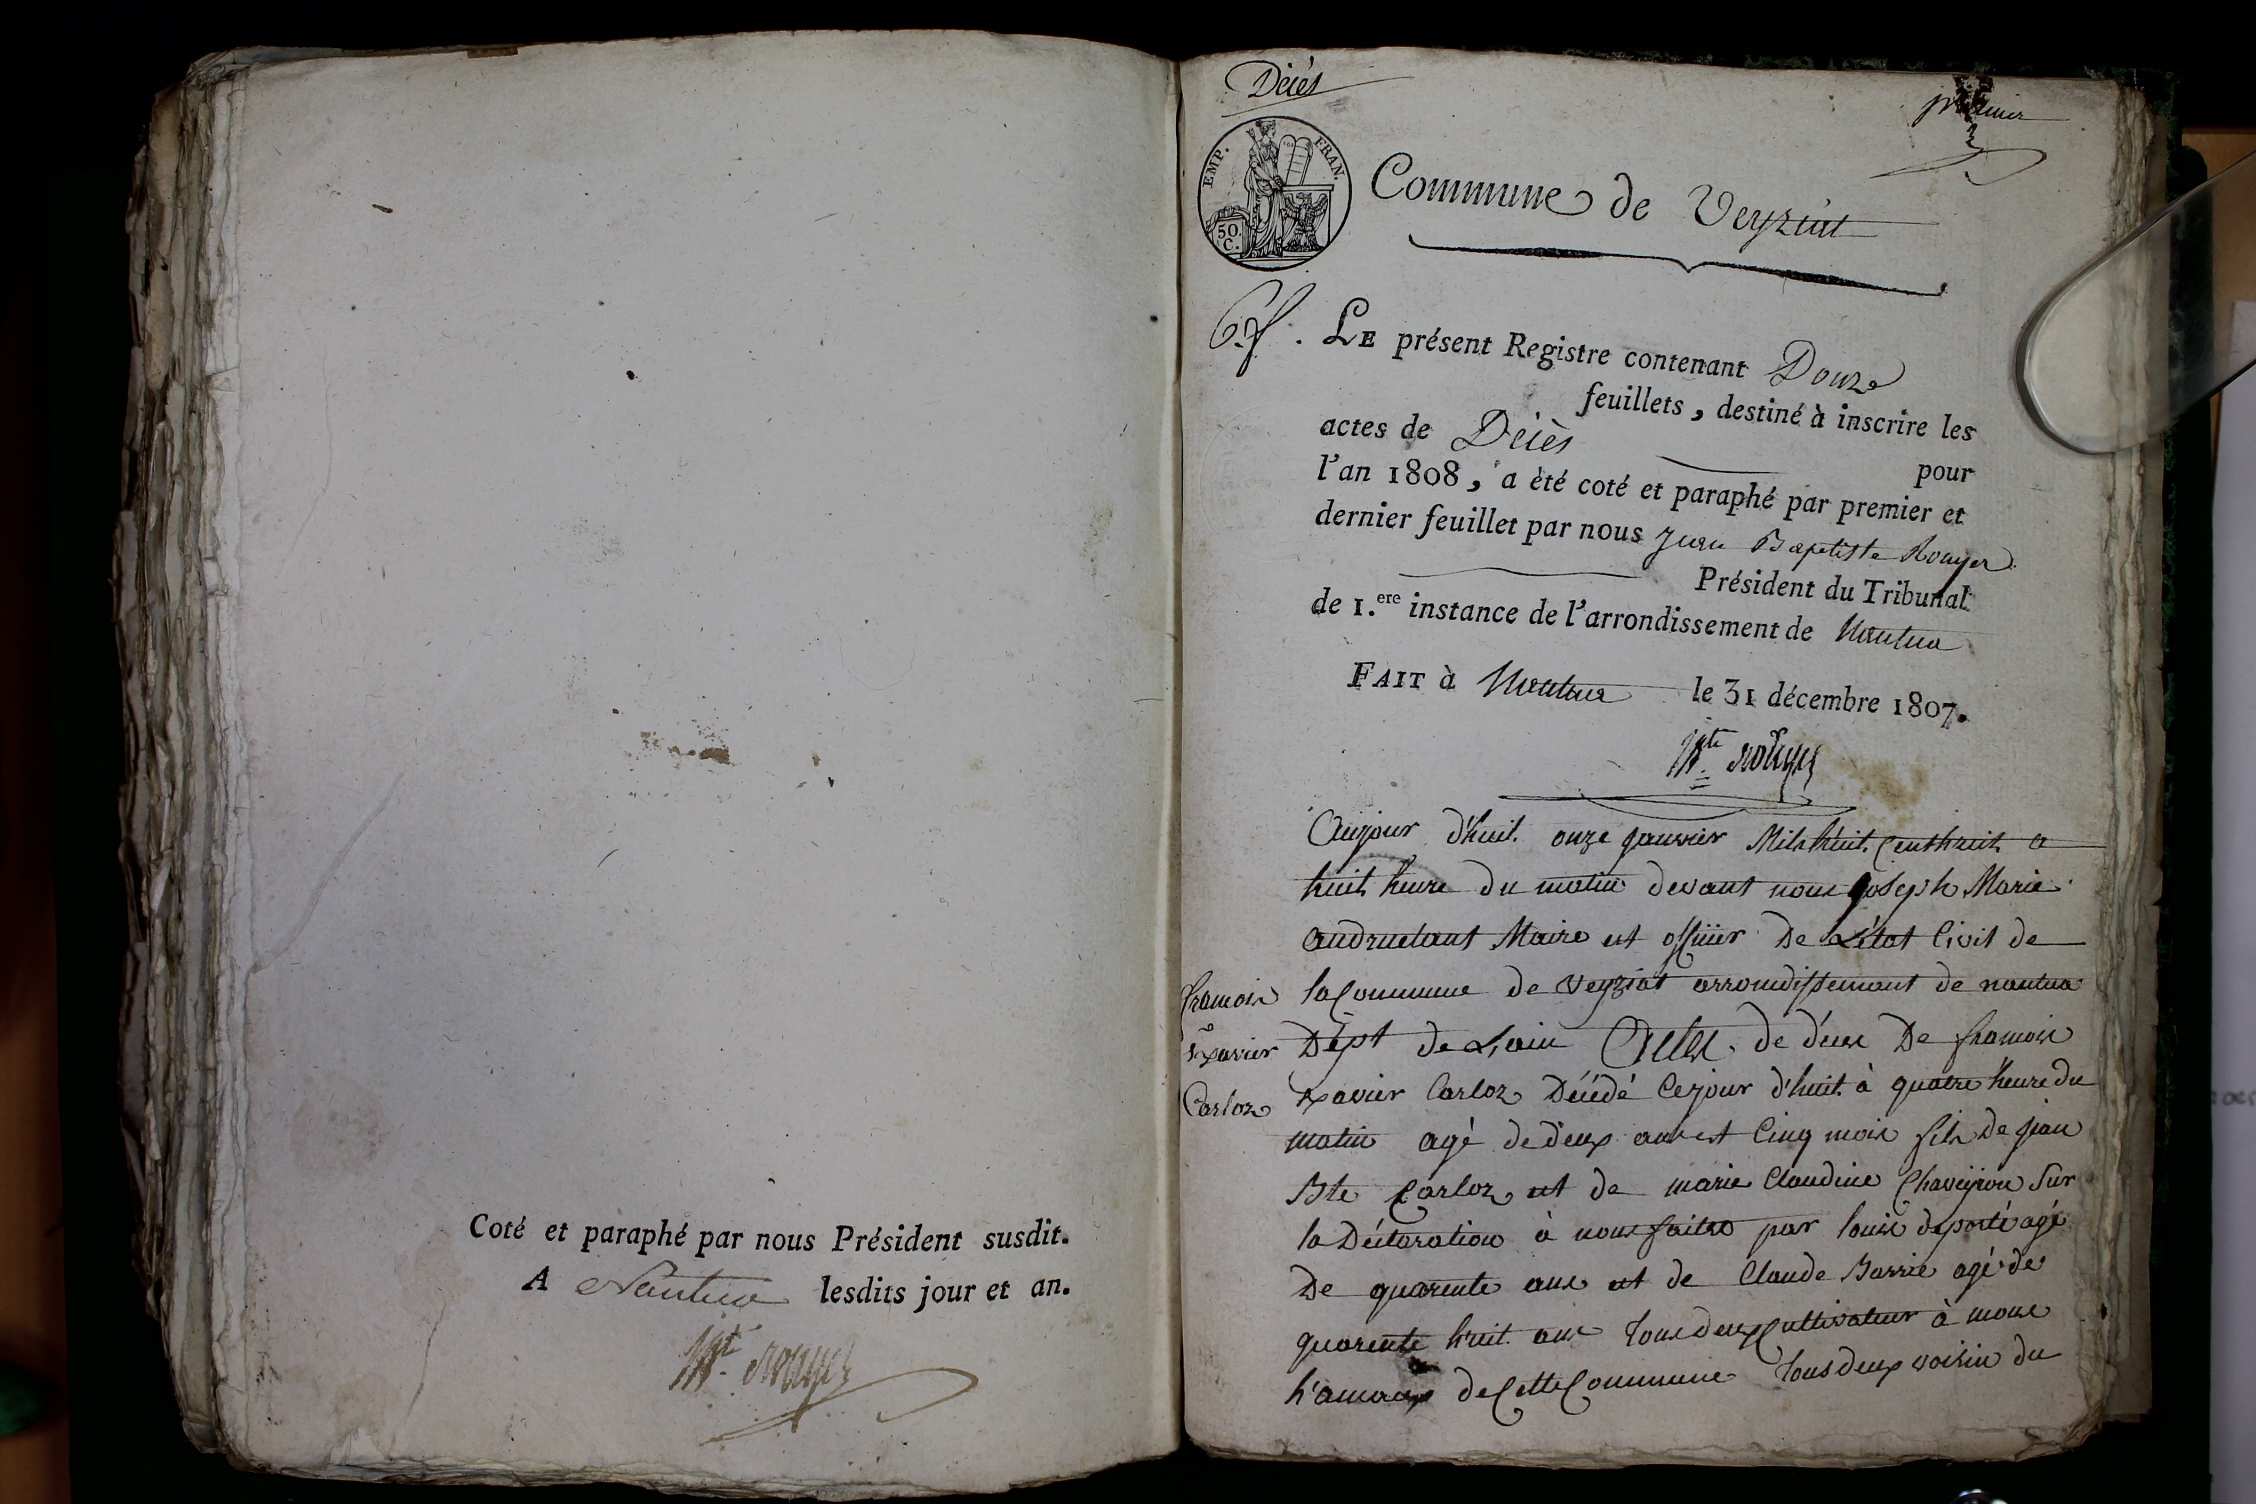 Coté et paraphé par nous Président susdit.
A Nantua lesdits jour et an.
Bte Rouyer
Décès
premier
EMP. FRAN.
50 C.
Commune de Veyziat
LE présent Registre contenant Douze
feuillets, destiné à inscrire les
actes de Décès pour
l'an 1808, a été coté et paraphé par premier et
dernier feuillet par nous Jean Baptiste Rouyer
Président du Tribunal
de 1.ere instance de l'arrondissement de Nantua
FAIT à Nantua le 31 décembre 1807.
Bte Rouyer
Aujour d'huit onze janvier Mil huit Cent huit a
huit heure du matin devant nous Joseph Marie
Maire et officier De L'état Civil de
la Commune de Veyziat arrondissement de nantua
Dépt de L'ain Actes de déces De francois
xavier Carloz Décédé Cejour d'huit à quatre heure du
matin agé de deux ans et Cinq mois fils De jean
Bte Carloz et de marie Claudine Chaveyron Sur
la Déclaration à nous faitte par louis deporté agé
De quarente ans et de Claude Barrie agé de
quarente huit ans tous deux Cultivateur à
h'amaux de Cette Commune tous deux voisin du
francois
xavier
Carloz